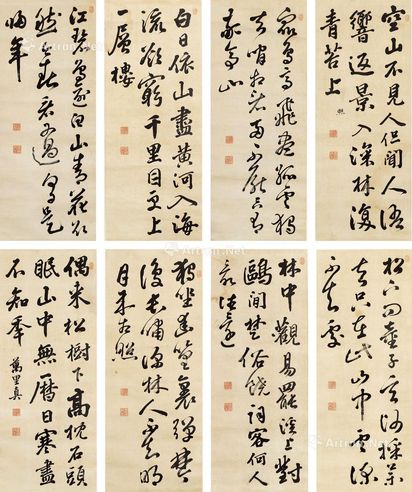 空山不見人但聞人語
響返景入深林復
青苔上
照
眾鳥高飛盡孤雲獨
去閒相看兩不厭只有
敬亭山
白日依山盡黃河入海
流欲窮千里目更上
一層樓
江碧鳥逾白山青花欲
然今春看又過何日是
歸年
松下問童子言師採藥
去只在此山中雲深
不知處
林中觀易罷溪上對
鷗閒楚俗饒詞客何人
最往還
獨坐幽篁裏彈琴
復長嘯深林人不知明
月來相照
偶來松樹下高枕石頭
眠山中無曆日寒盡
不知年